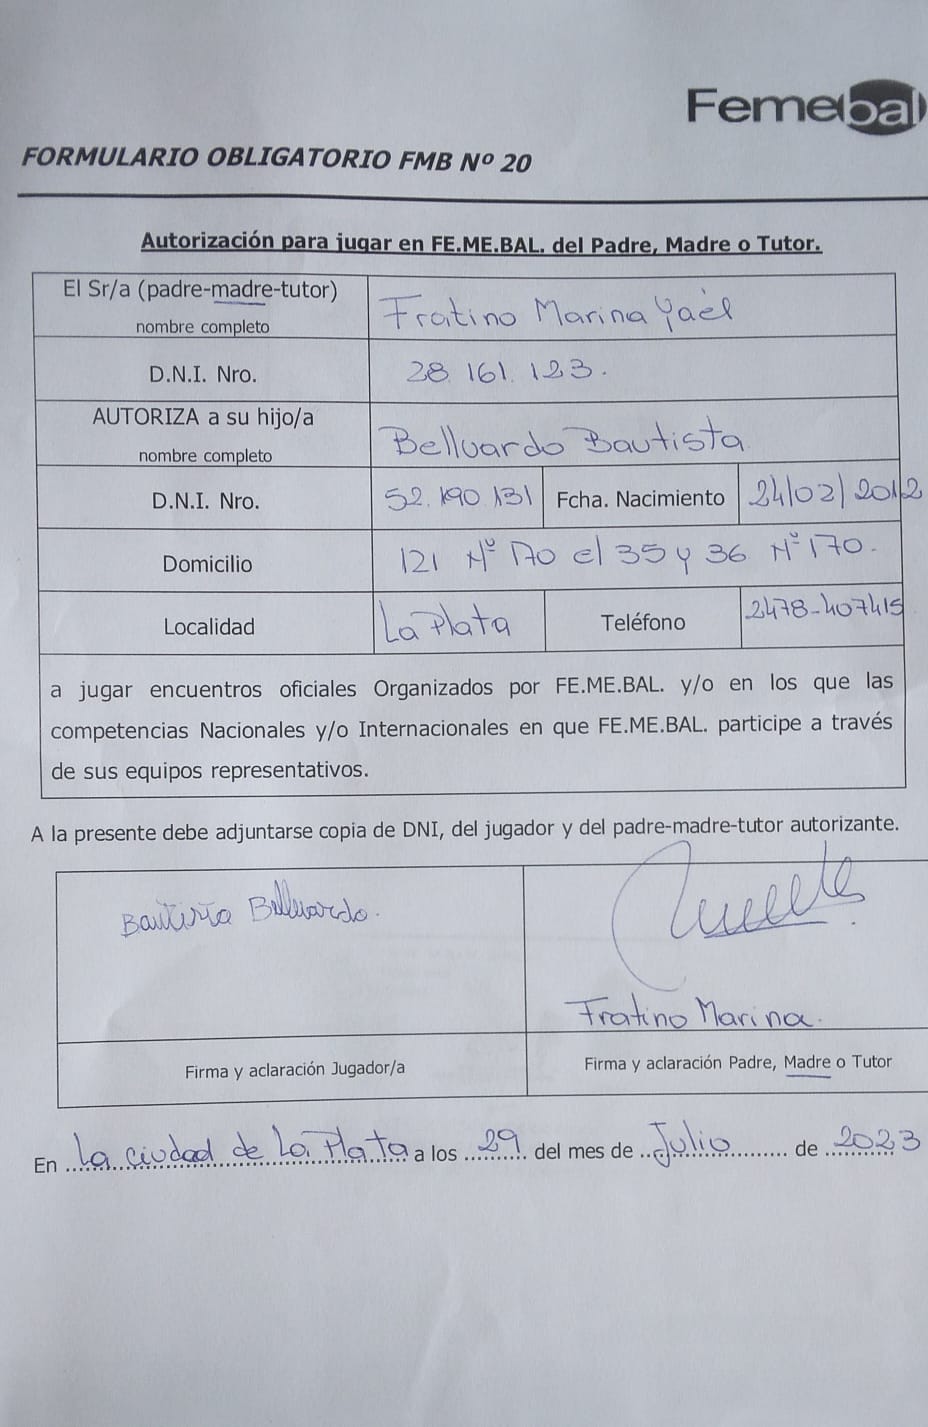 Femebal
FORMULARIO OBLIGATORIO FMB Nº 20
Autorización para jugar en FE.ME.BAL. del Padre, Madre o Tutor.
El Sr/a (padre-madre-tutor)
nombre completo
Fratino Marina Yaél
D.N.I. Nro.
28.161.123.
AUTORIZA a su hijo/a
nombre completo
Belluardo Bautista
D.N.I. Nro.
52.190.131
Fcha. Nacimiento
24/02/2012
Domicilio
121 Nº 170 e/ 35 y 36 Nº 170.
Localidad
La Plata
Teléfono
2478-407415
a jugar encuentros oficiales Organizados por FE.ME.BAL. y/o en los que las
competencias Nacionales y/o Internacionales en que FE.ME.BAL. participe a través
de sus equipos representativos.
A la presente debe adjuntarse copia de DNI, del jugador y del padre-madre-tutor autorizante.
Bautista Belluardo.
Fratino Marina.
Firma y aclaración Jugador/a
Firma y aclaración Padre, Madre o Tutor
En La ciudad de La Plata a los 29 del mes de Julio de 2023